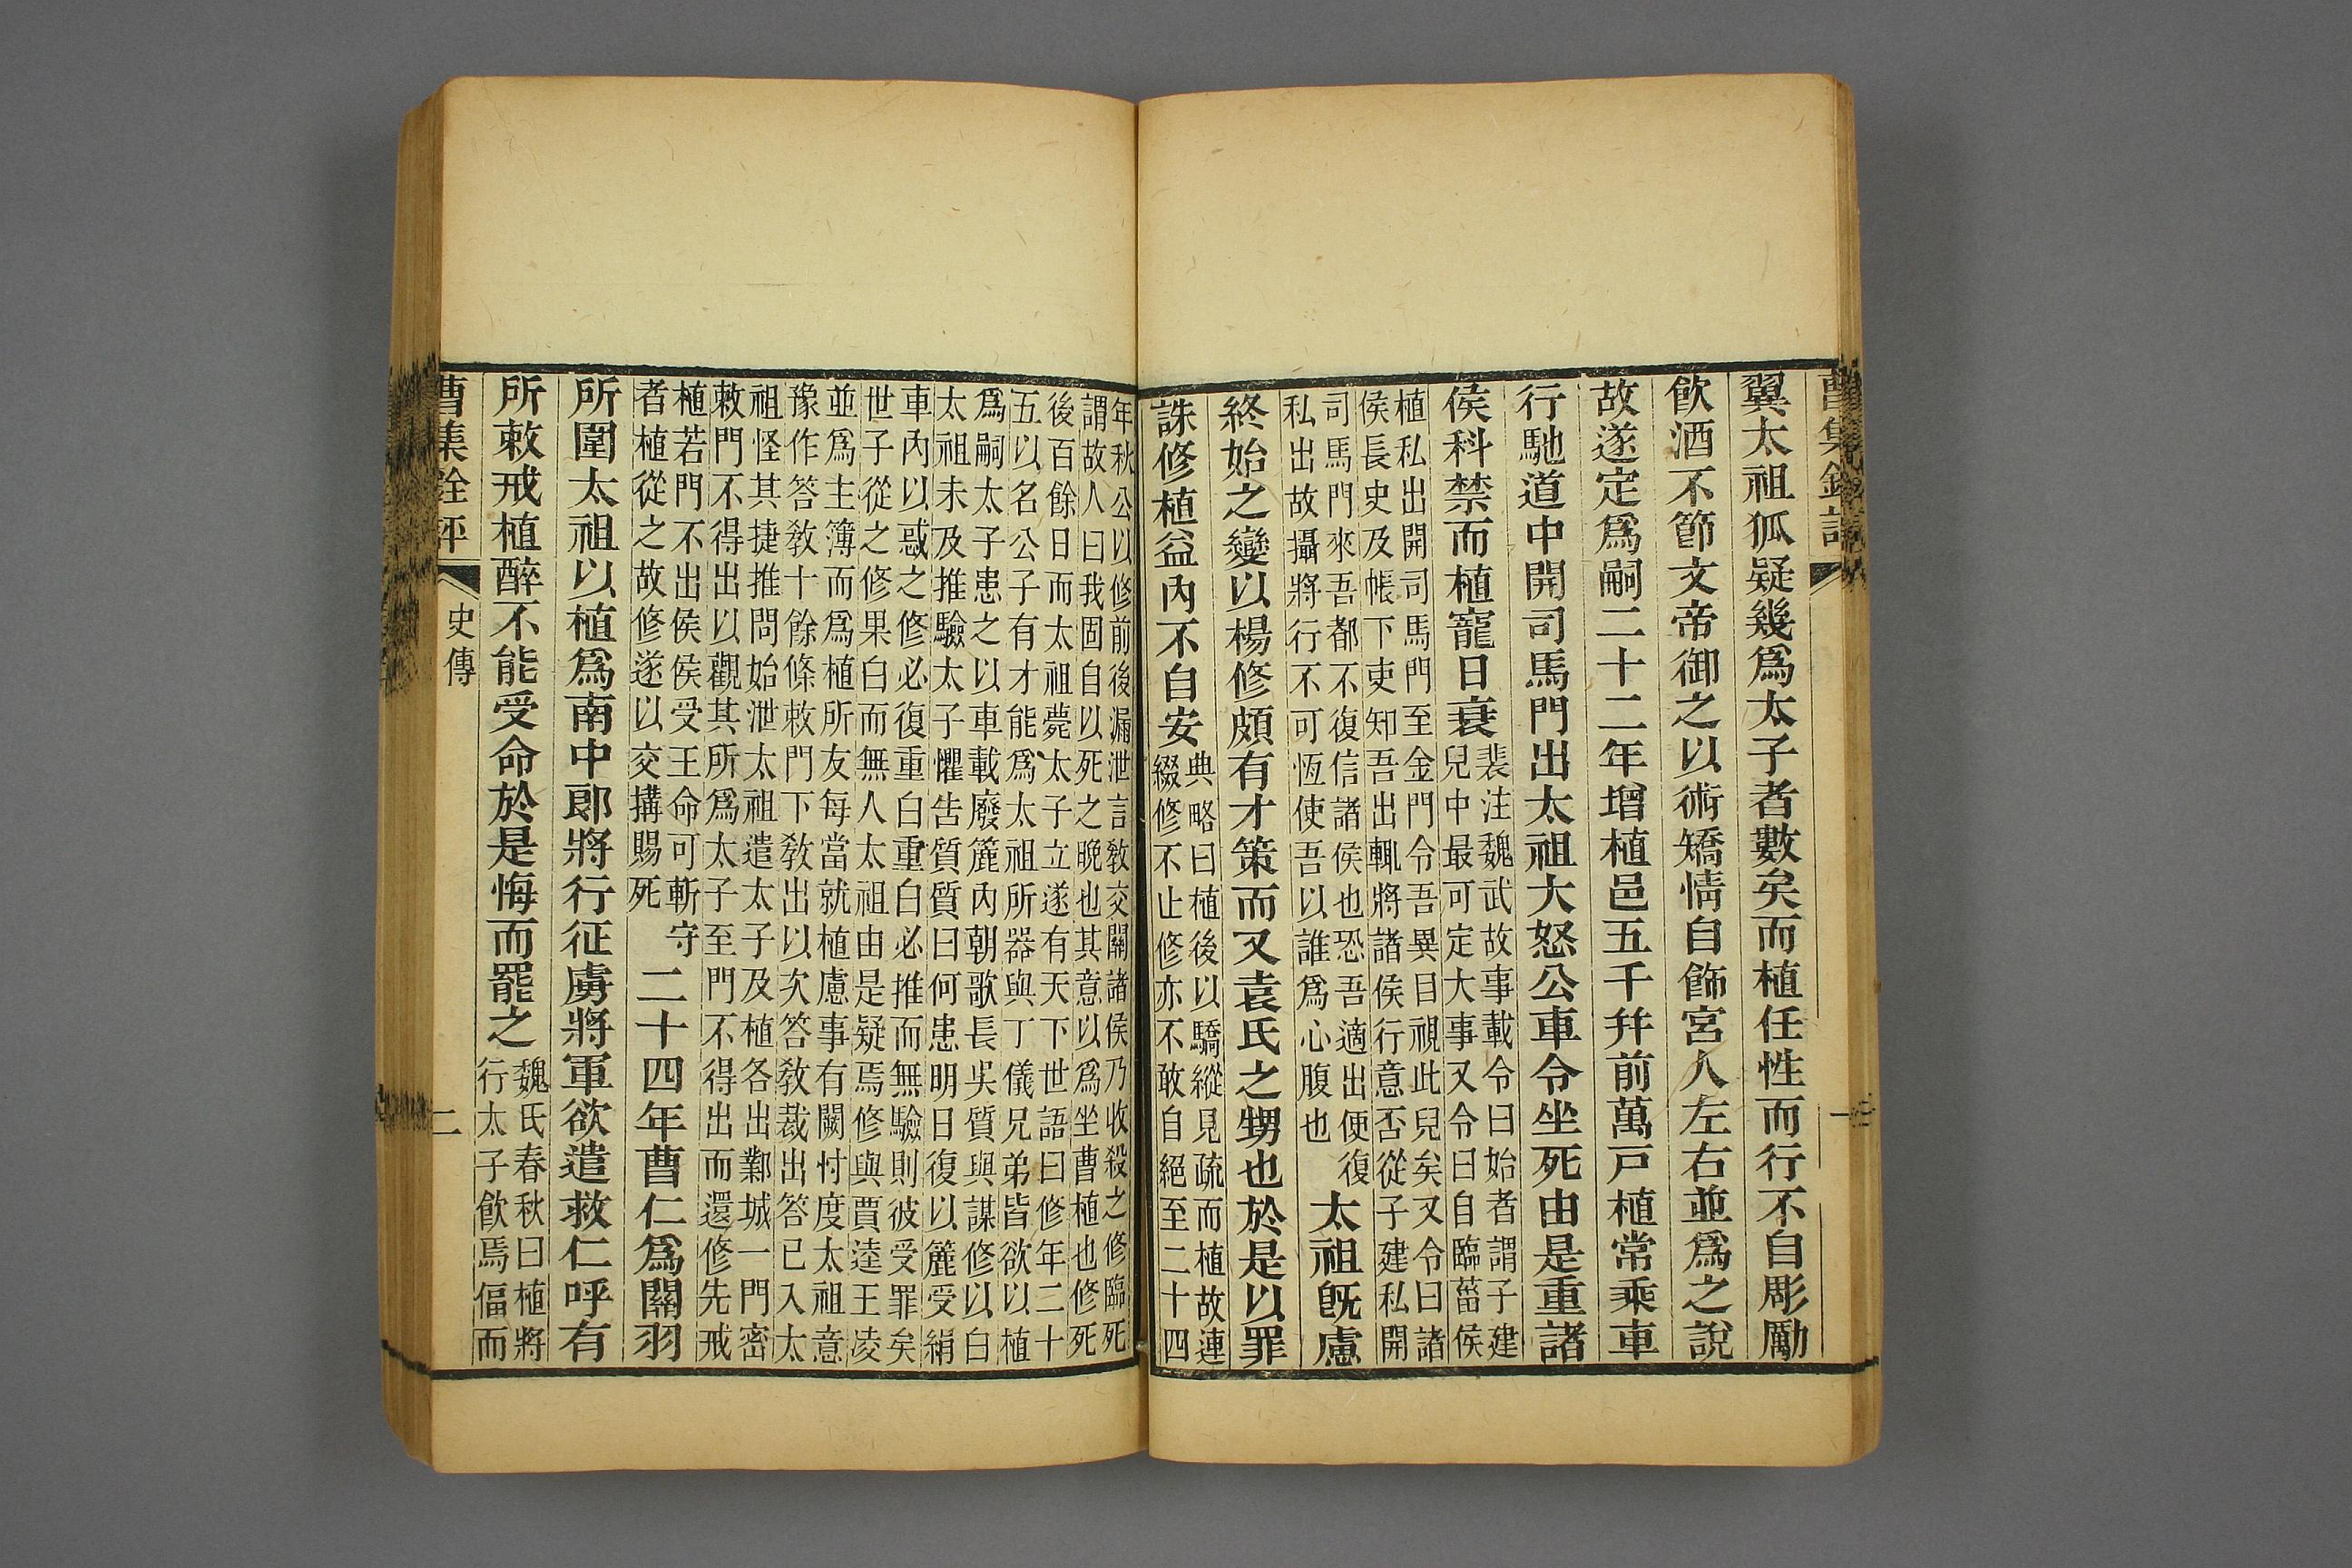 曹集銓評
翼太祖狐疑幾爲太子者數矣而植任性而行不自彫勵
飮酒不節文帝御之以術矯情自飾宮人左右並爲之說
故遂定爲嗣二十二年增植邑五千幷前萬戸植常乘車
行馳道中開司馬門出太祖大怒公車令坐死由是重諸
侯科禁而植寵日衰
裴注魏武故事載令曰始者謂子建
兒中最可定大事又令曰自臨菑侯
植私出開司馬門至金門令吾異目視此兒矣又令曰諸
侯長史及帳下吏知吾出輒將諸侯行意否從子建私開
司馬門來吾都不復信諸侯也恐吾適出便復
私出故攝將行不可恆使吾以誰爲心腹也
太祖旣慮
終始之變以楊修頗有才策而又袁氏之甥也於是以罪
誅修植益內不自安
典略曰植後以驕縱見疏而植故連
綴修不止修亦不敢自絕至二十四
年秋公以修前後漏泄言敎交關諸侯乃收殺之修臨死
謂故人曰我固自以死之晚也其意以爲坐曹植也修死
後百餘日而太祖薨太子立遂有天下世語曰修年二十
五以名公子有才能爲太祖所器與丁儀兄弟皆欲以植
爲嗣太子患之以車載廢簏內朝歌長吳質與謀修以白
太祖未及推驗太子懼告質質曰何患明日復以簏受絹
車內以惑之修必復重白重白必推而無驗則彼受罪矣
世子從之修果白而無人太祖由是疑焉修與賈逵王凌
並爲主簿而爲植所友每當就植慮事有闕忖度太祖意
豫作答敎十餘條敕門下敎出以次答敎裁出答已入太
祖怪其捷推問始泄太祖遣太子及植各出鄴城一門密
敕門不得出以觀其所爲太子至門不得出而還修先戒
植若門不出侯侯受王命可斬守
者植從之故修遂以交搆賜死
二十四年曹仁爲關羽
所圍太祖以植爲南中郎將行征虜將軍欲遣救仁呼有
所敕戒植醉不能受命於是悔而罷之
魏氏春秋曰植將
行太子飮焉偪而
曹集銓評
史傳
二